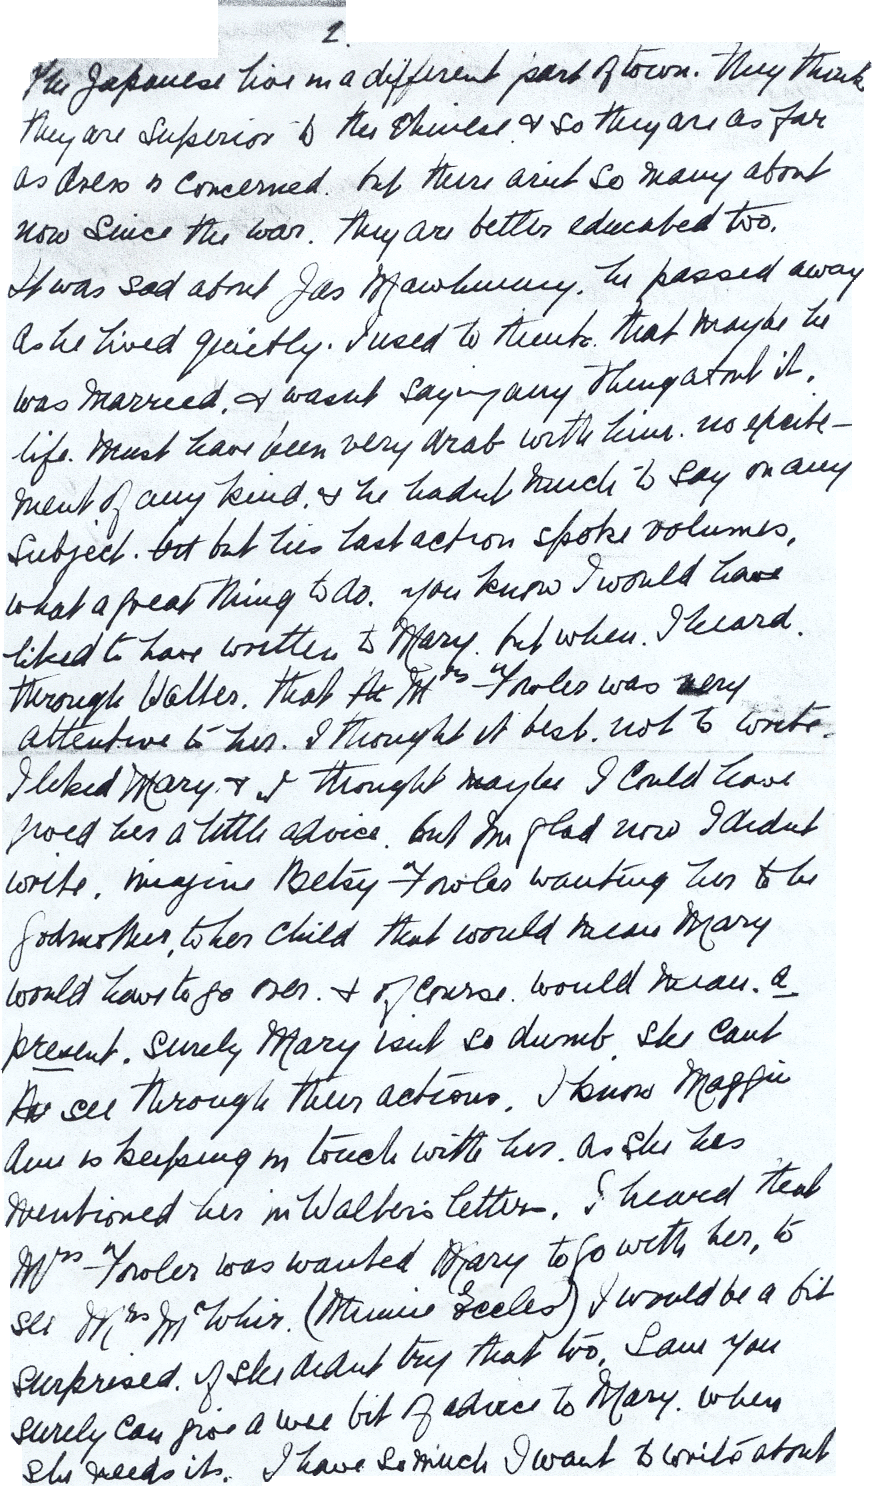 2.
The Japanese live in a different part of town. They think
they are superior to the Chinese & so they are as far
as dress is concerned. but there aint so many about
now since the war. they are better educated too.
It was sad about Jas Mawhinney. he passed away
as he lived quietly. I used to think. that maybe he
was married. & wasnt saying any thing about it.
life. must have been very drab with him. no excite-
ment of any kind. & he hadnt much to say on any
subject. but but his last action spoke volumes,
what a great thing to do. you know I would have
liked to have written to Mary. but when. I heard.
through Walter. that Mrs Fowler was very
attentive to her. I thought it best. not to write.
I liked Mary & I thought maybe I could have
gived her a little advice. but Im glad now I didnt
write. imagine Betsy Fowler wanting her to be
godmother, to her child that would mean Mary
would have to go over. & of course. would mean. a
present. surely Mary isnt so dumb. she cant
see through their actions. I know Maggie
Ann is keeping in touch with her. as she has
mentioned her in Walter's letters. I heard that
Mrs Fowler was wanted Mary to go with her, to
see Mrs McWhir. (Minnie Eccles) I would be a bit
surprised. if she didnt try that too. Sam you
surely can give a wee bit of advice to Mary. when
she needs it. I have so much I want to write about